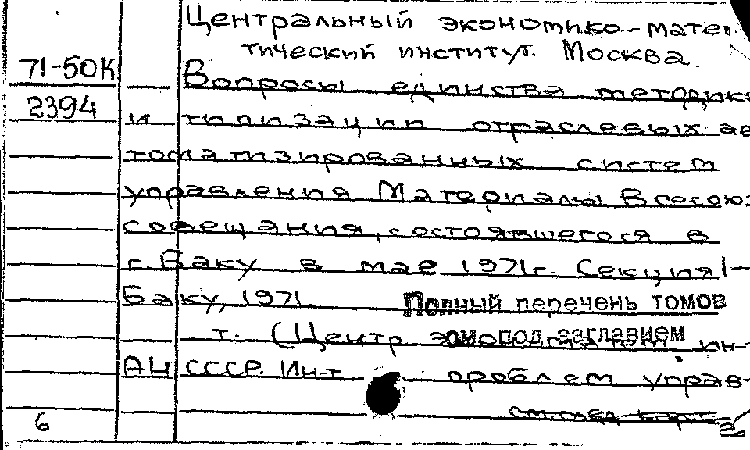 Центральный экономико-матема-
тический институт. Москва.
71-50К Вопросы единства методики
2394 и типизации отраслевых ав
томатизированных систем
управления Материалы Всесоюз
совещания, состоявшегося в
г. Баку в мае 1971г. Секция 1-
Баку, 1971 Полный перечень томов
т. (Центр под заглавием ин-
АН СССР. Ин-т проблем управ-
см. след карт.
6 2